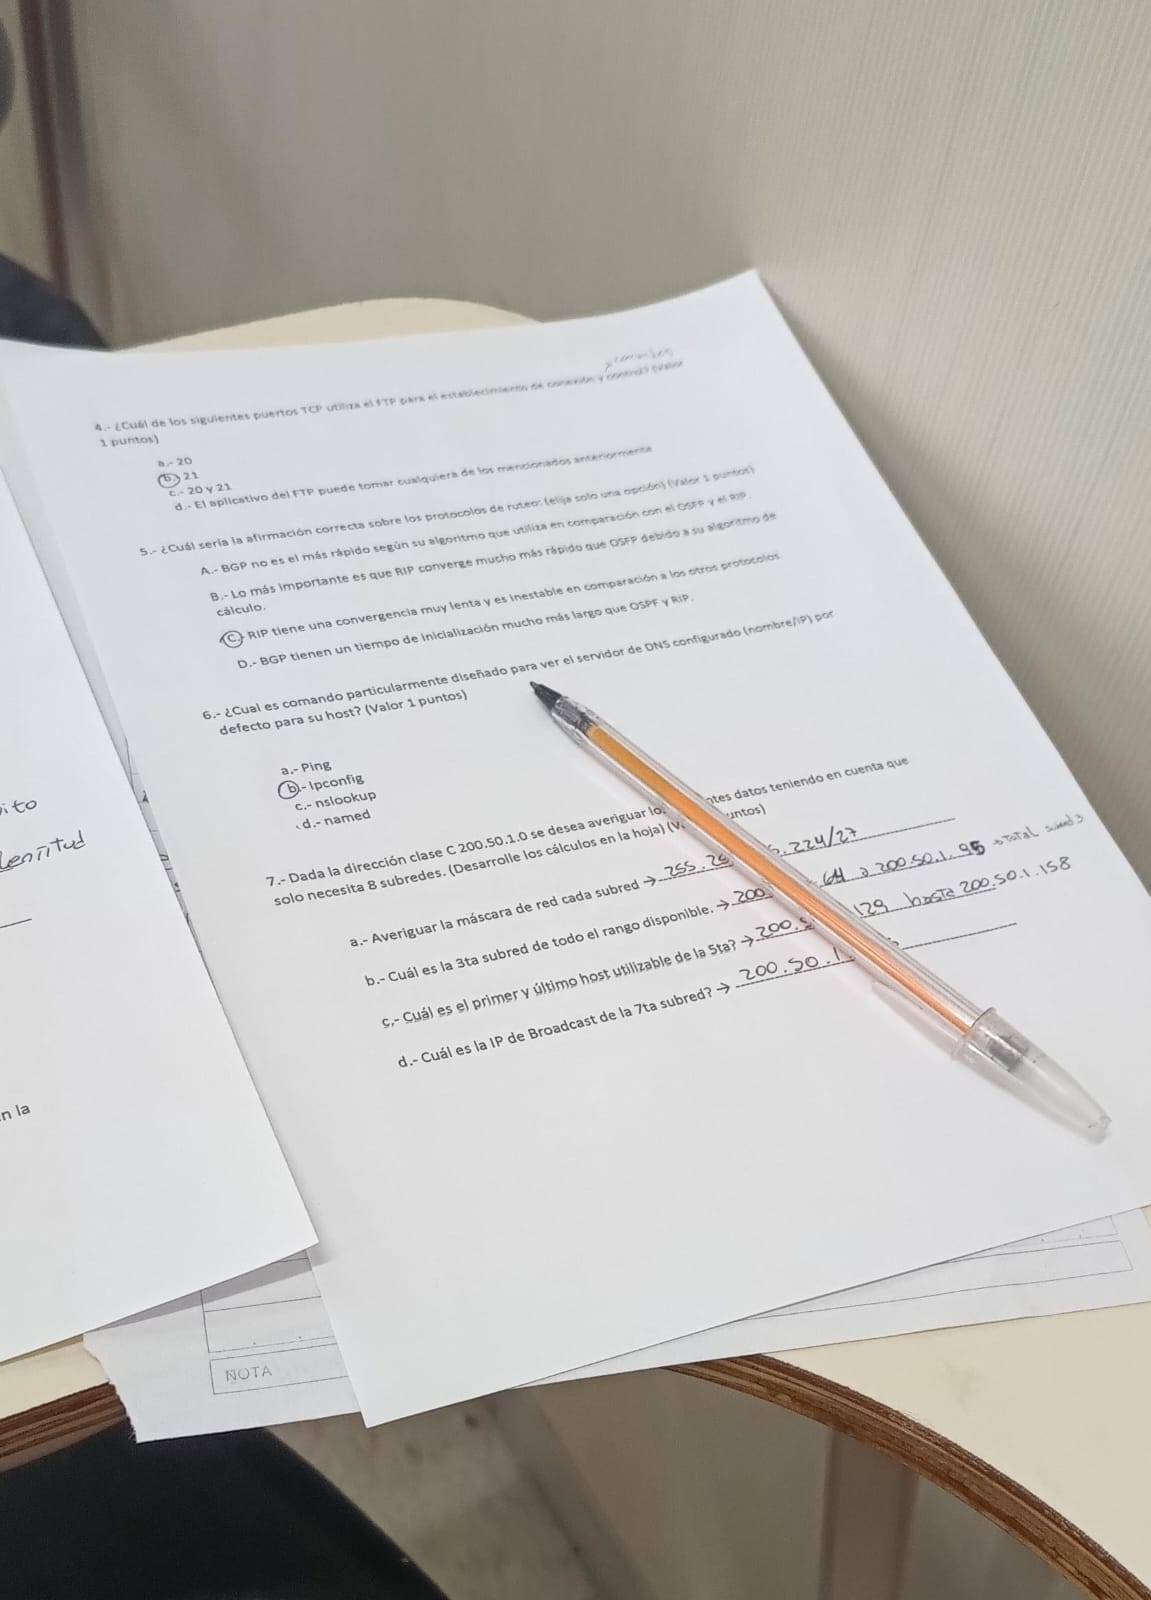 4.- ¿Cuál de los siguientes puertos TCP utiliza el FTP para el establecimiento de conexión y control? (Valor
1 puntos)
a.- 20
b.- 21
c.- 20 y 21
d.- El aplicativo del FTP puede tomar cualquiera de los mencionados anteriormente
5.- ¿Cuál sería la afirmación correcta sobre los protocolos de ruteo: (elija solo una opción) (Valor 1 puntos)
A.- BGP no es el más rápido según su algoritmo que utiliza en comparación con el OSFP y el RIP.
B.- Lo más importante es que RIP converge mucho más rápido que OSFP debido a su algoritmo de
cálculo.
C.- RIP tiene una convergencia muy lenta y es inestable en comparación a los otros protocolos
D.- BGP tienen un tiempo de inicialización mucho más largo que OSPF y RIP.
6.- ¿Cual es comando particularmente diseñado para ver el servidor de DNS configurado (nombre/IP) por
defecto para su host? (Valor 1 puntos)
a.- Ping
b.- Ipconfig
c.- nslookup
d.- named
7.- Dada la dirección clase C 200.50.1.0 se desea averiguar lo ntes datos teniendo en cuenta que
solo necesita 8 subredes. (Desarrolle los cálculos en la hoja) (V untos)
a.- Averiguar la máscara de red cada subred → 255.25 .224/27
b.- Cuál es la 3ta subred de todo el rango disponible. → 200 .64 a 200.50.1.95 → total
c.- Cuál es el primer y último host utilizable de la 5ta? → 200.5 129 hasta 200.50.1.158
d.- Cuál es la IP de Broadcast de la 7ta subred? → 200.50.1.
ito
n la
NOTA